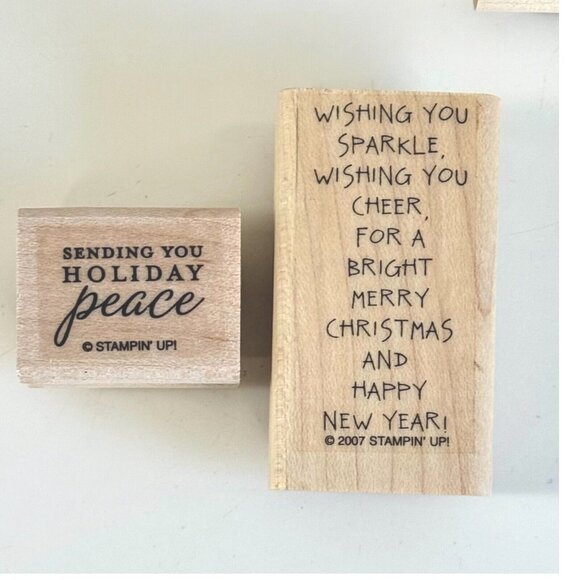 SENDING YOU
HOLIDAY
peace
© STAMPIN' UP!
WISHING YOU
SPARKLE,
WISHING YOU
CHEER,
FOR A
BRIGHT
MERRY
CHRISTMAS
AND
HAPPY
NEW YEAR!
© 2007 STAMPIN' UP!